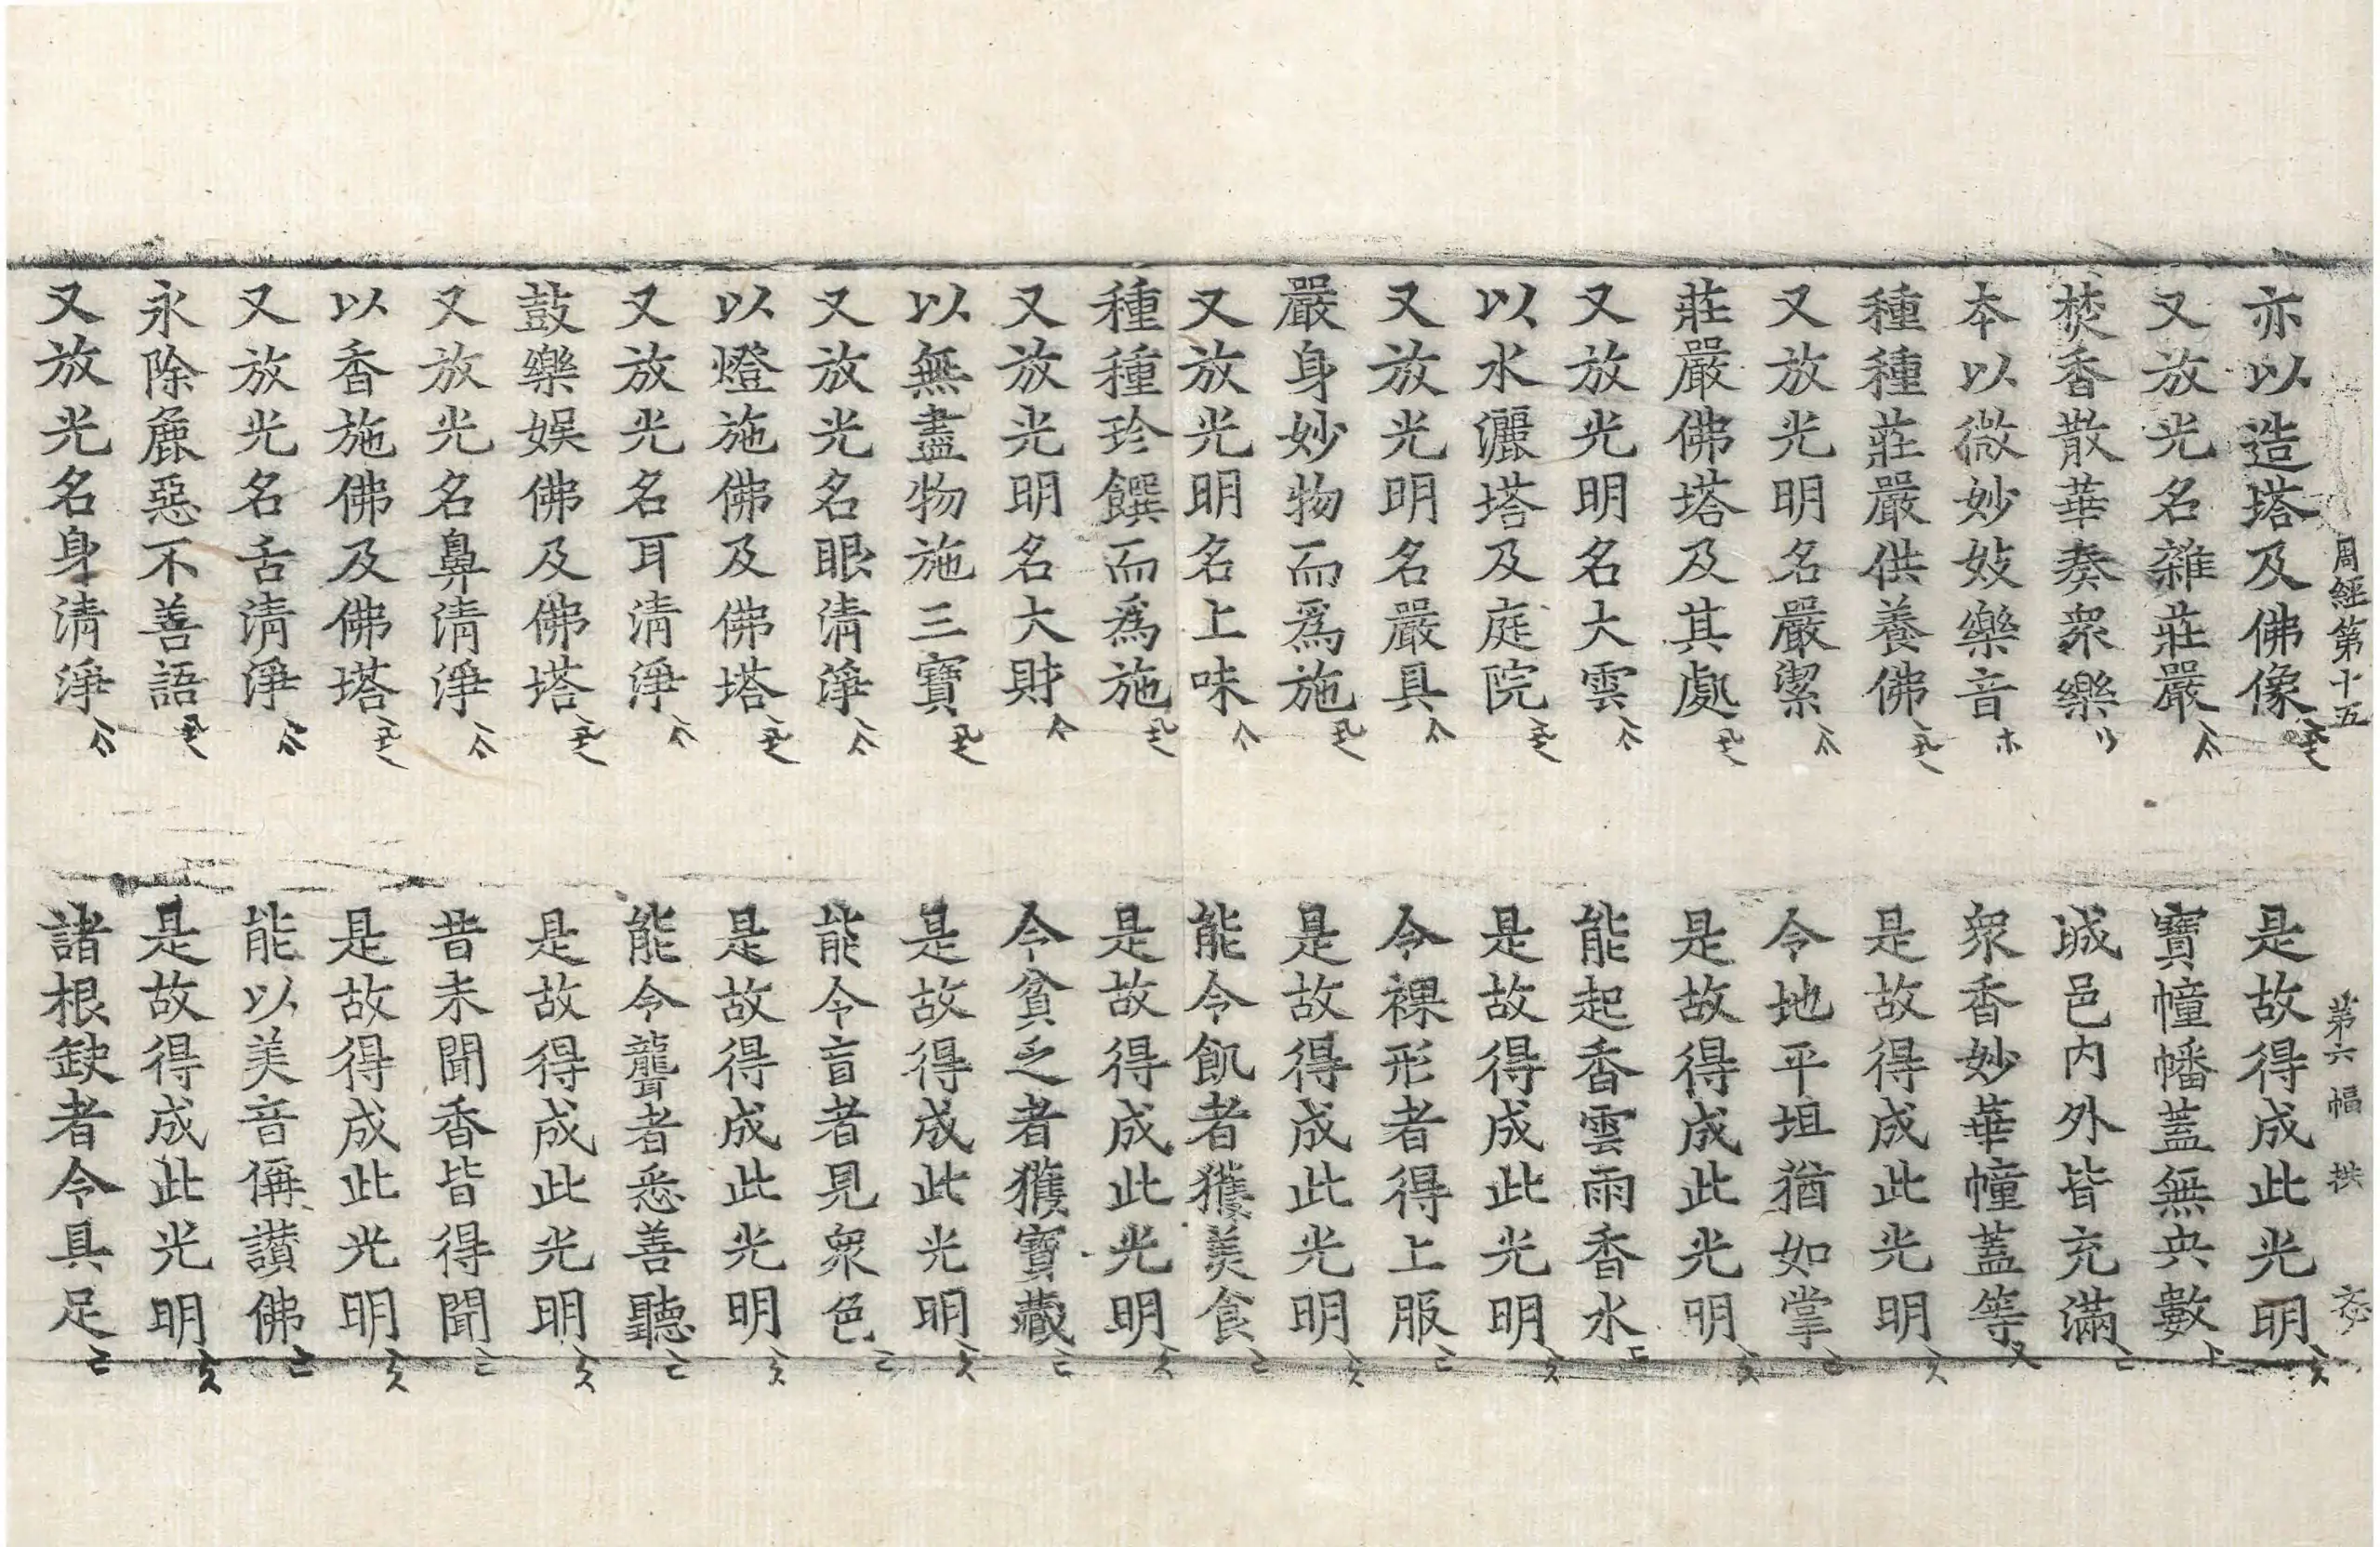 周經第十五 第六幅 拱
亦以造塔及佛像 是故得成此光明
又放光名雜莊嚴 寶幢幡蓋無央數
焚香散華奏衆樂 城邑內外皆充滿
本以微妙妓樂音 衆香妙華幢蓋等
種種莊嚴供養佛 是故得成此光明
又放光明名嚴潔 令地平坦猶如掌
莊嚴佛塔及其處 是故得成此光明
又放光明名大雲 能起香雲雨香水
以水灑塔及庭院 是故得成此光明
又放光明名嚴具 令裸形者得上服
嚴身妙物而爲施 是故得成此光明
又放光明名上味 能令飢者獲美食
種種珍饌而爲施 是故得成此光明
又放光明名大財 令貧乏者獲寶藏
以無盡物施三寶 是故得成此光明
又放光名眼清淨 能令盲者見衆色
以燈施佛及佛塔 是故得成此光明
又放光名耳清淨 能令聾者悉善聽
鼓樂娛佛及佛塔 是故得成此光明
又放光名鼻清淨 昔未聞香皆得聞
以香施佛及佛塔 是故得成此光明
又放光名舌清淨 能以美音稱讚佛
永除麁惡不善語 是故得成此光明
又放光名身清淨 諸根缺者令具足